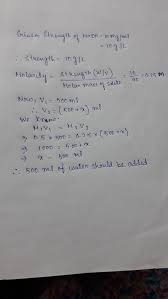 Given Strength of NaOH = 10 mg/ml
= 10 g/L
∴ Strength = 10 g/L
Molarity = Strength (W/V) / Molar mass of solute = 10/40 = 0.25 M
Now, V₁ = 500 ml
∴ V₂ = (500+x) ml
We know:
M₁V₁ = M₂V₂
⇒ 0.5 × 500 = 0.25 × (500+x)
⇒ 1000 = 500+x
⇒ x = 500 ml
∴ 500 ml of water should be added